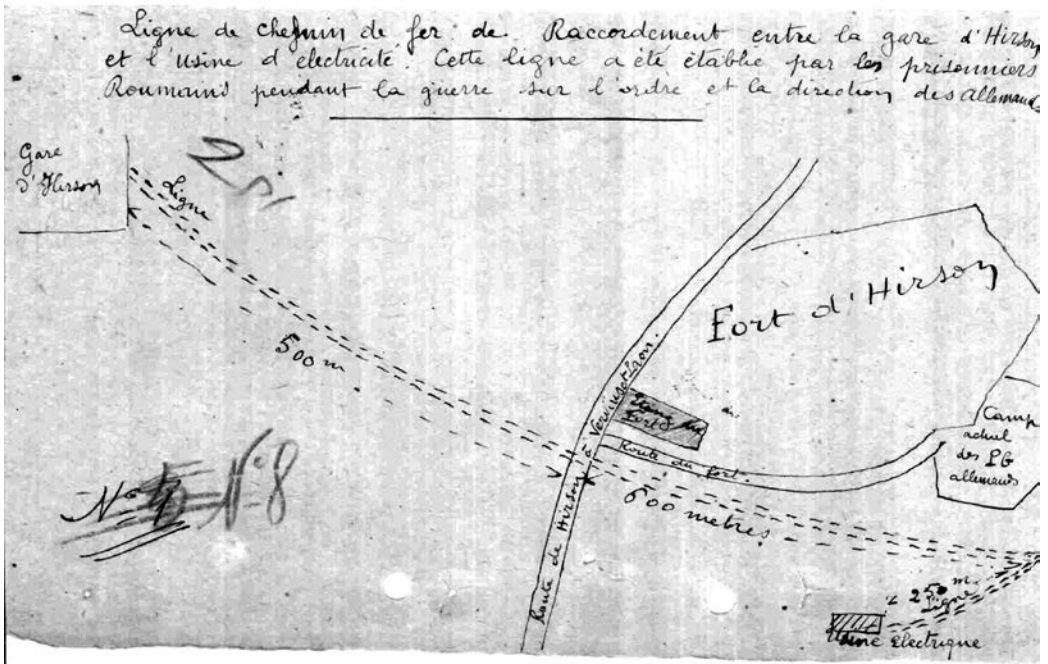 Ligne de chemin de fer de Raccordement entre la gare d'Hirson
et l'usine d'electricité. Cette ligne a été établie par les prisonniers
Roumains pendant la guerre sur l'ordre et la direction des Allemands
Gare
d'Hirson
Ligne
25
500 m
Fort d'Hirson
Etang du
Fort
Route du fort.
Route de Hirson à Vervins et Laon.
Camp
actuel
des PG
allemands
N°8
600 metres
250 m.
Ligne
Usine électrique